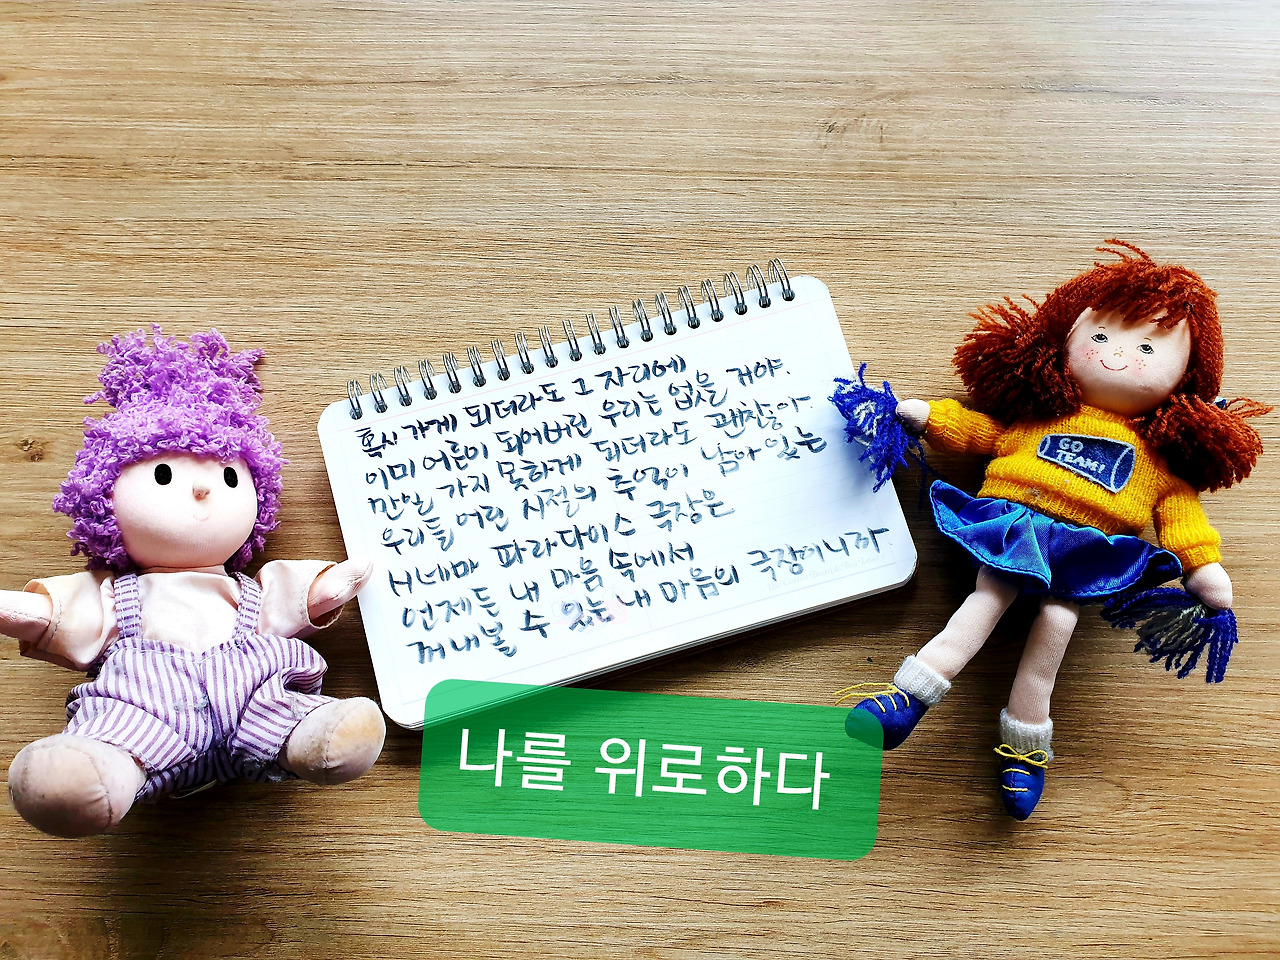 혹시 가게 되더라도 그 자리에
이미 어른이 되어버린 우리는 없을 거야.
만일 가지 못하게 되더라도 괜찮아.
우리들 어린 시절의 추억이 남아 있는
시네마 파라다이스 극장은
언제든 내 마음 속에서
꺼내볼 수 있는 내 마음의 극장이니까
GO
TEAM!
나를 위로하다